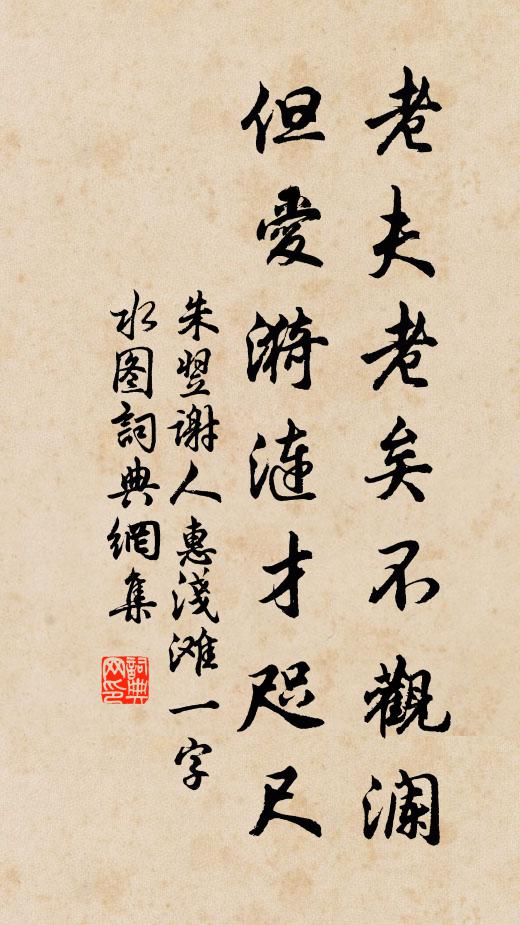 老夫老矣不觀澜
但愛漪涟才咫尺
朱翌谢人惠淺滩一字
水图詞典網集
詞典网印